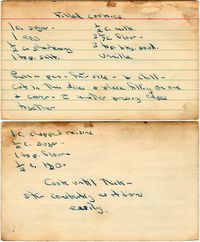 Filled Cookies
1 c. sugar
1 egg
½ c. shortening
1 tsp. salt
½ c. milk
3½ c. flour
3 tsp. bkg. powd.
Vanilla
Put in pan - & chill -
Cut in thin discs & place filling on one
& cover - pressing edges
together
1 c. chopped raisins
½ c. sugar -
1 tsp. flour -
½ c. H2O -
Cook until thick -
stir constantly as it burns
easily.